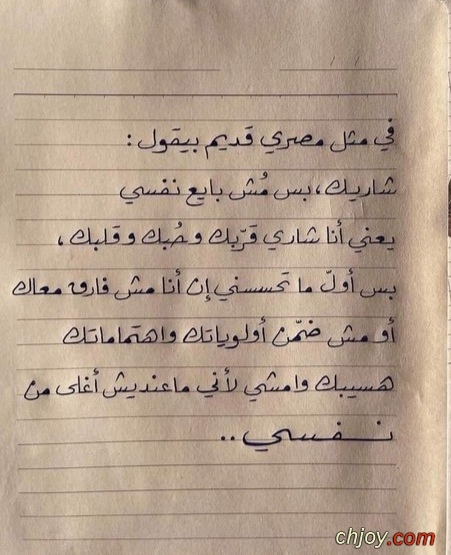 في مثل مصري قديم بيقول :
شاريك، بس مُش بايع نفسي
يعني أنا شاري قربك وحُبك وقلبك،
بس أولّ ما تحسسني إن أنا مش فارق معاك
أو مش ضمّن أولوياتك واهتماماتك
هسيبك وامشي لأني ماعنديش أغلى من
نـفـسـي..
chjoy.com